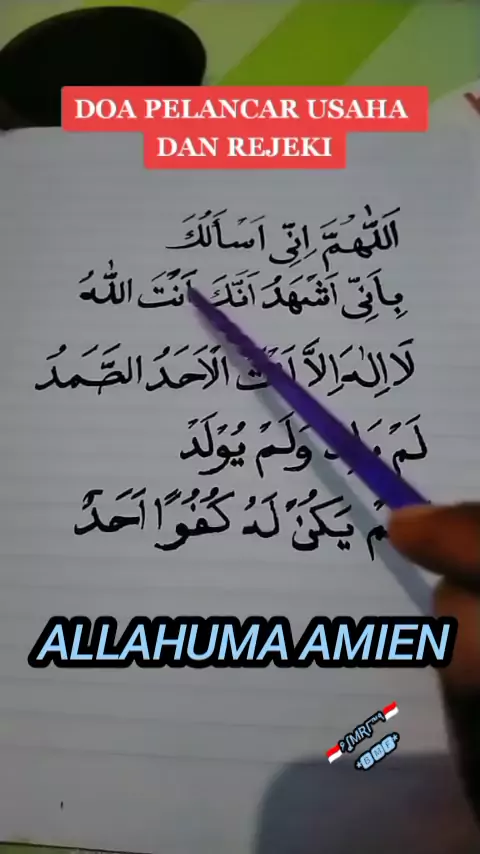 DOA PELANCAR USAHA
DAN REJEKI
اَللّٰهُمَّ اِنِّى اَسْاَلُكَ
بِاَنِّى اَشْهَدُ اَنَّكَ اَنْتَ اللّٰهُ
لَا اِلٰهَ اِلَّا اَنْتَ الْاَحَدُ الصَّمَدُ
لَمْ يَلِدْ وَلَمْ يُوْلَدْ
يَكُنْ لَهُ كُفُوًا اَحَدٌ
ALLAHUMA AMIEN
BMF